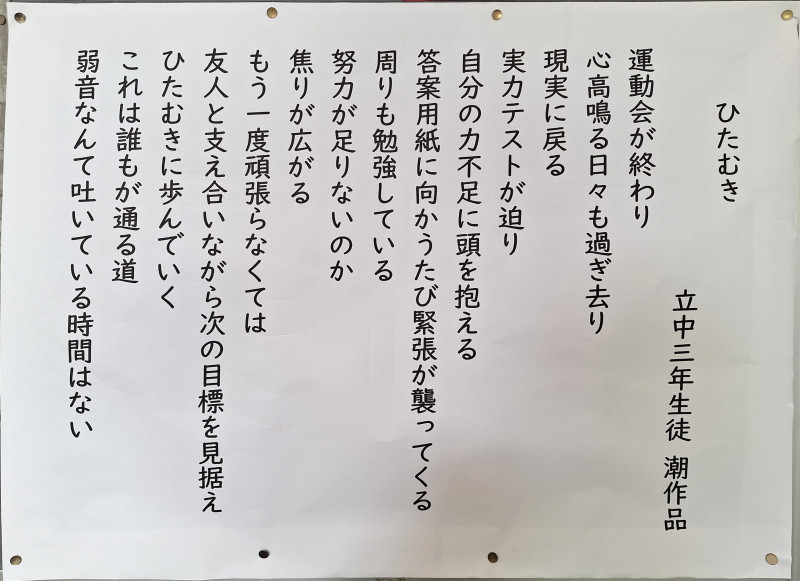 ひたむき
立中三年生徒 潮作品
運動会が終わり
心高鳴る日々も過ぎ去り
現実に戻る
実力テストが迫り
自分の力不足に頭を抱える
答案用紙に向かうたび緊張が襲ってくる
周りも勉強している
努力が足りないのか
焦りが広がる
もう一度頑張らなくては
友人と支え合いながら次の目標を見据え
ひたむきに歩んでいく
これは誰もが通る道
弱音なんて吐いている時間はない